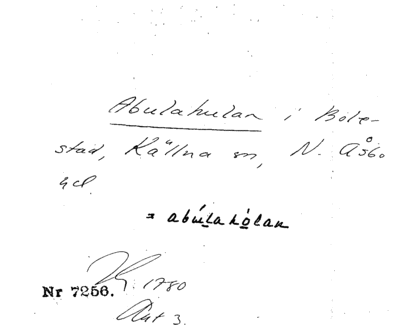 Abulahulan i Bole-
stad, Källna sn, N. Åsbo
hd.
= abúlahólan
1780
Nr 7256.
Ant 3.